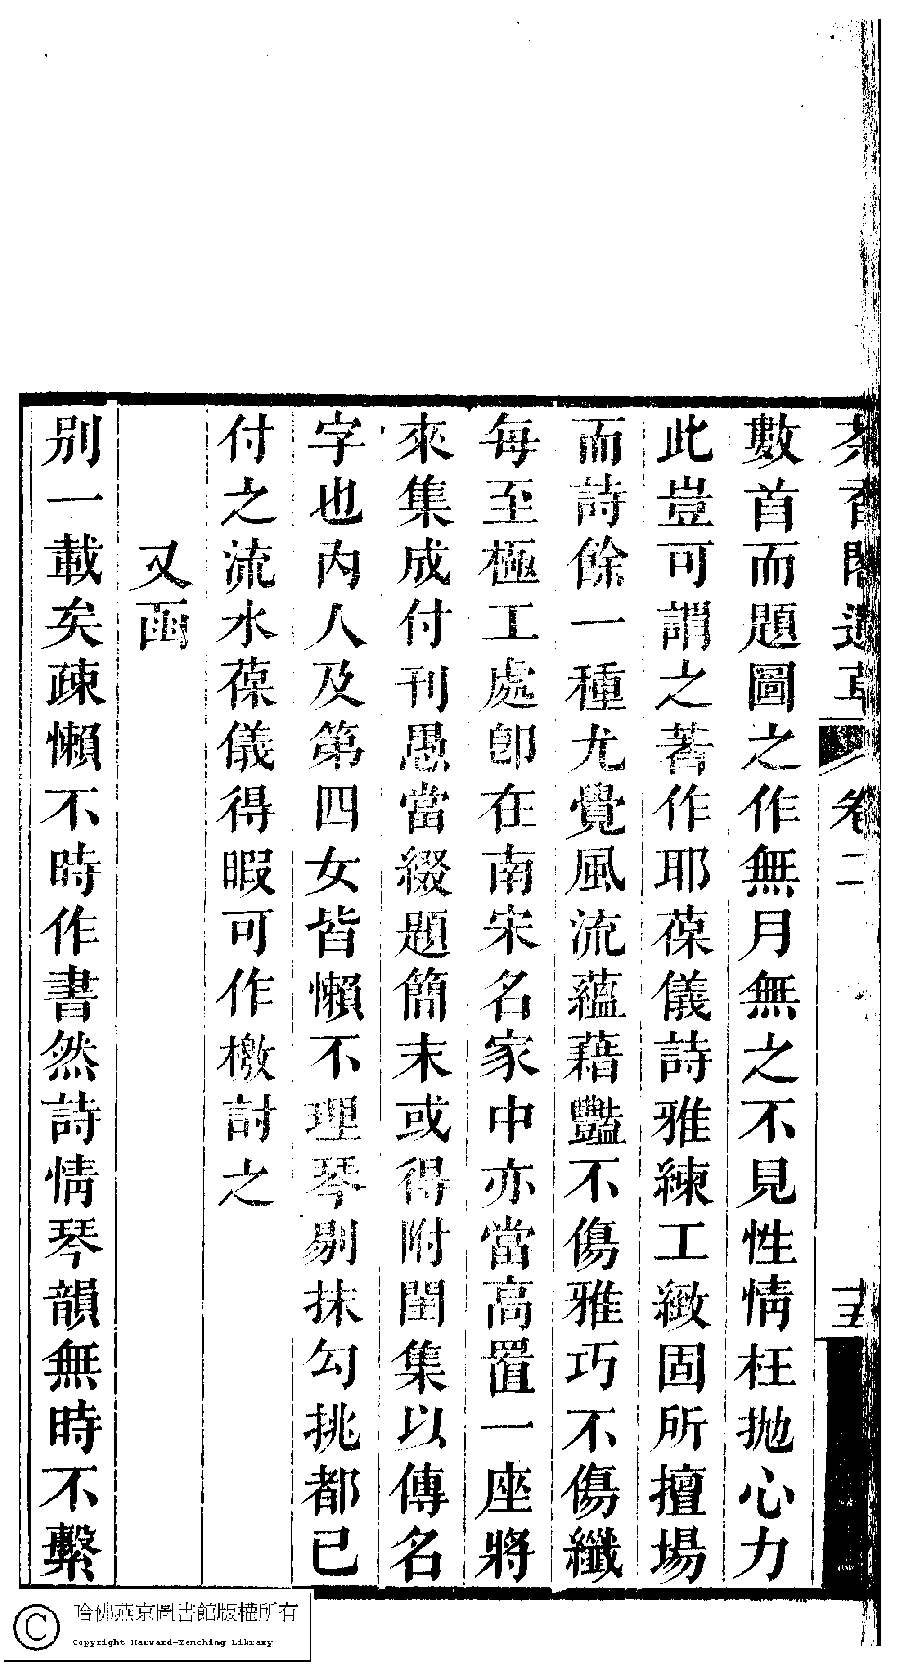 茶香閣遺草 卷二 十五
數首而題圖之作無月無之不見性情枉拋心力
此豈可謂之著作耶葆儀詩雅練工緻固所擅場
而詩餘一種尤覺風流蘊藉豔不傷雅巧不傷纖
每至極工處卽在南宋名家中亦當高置一座將
來集成付刊愚當綴題簡末或得附閨集以傳名
字也內人及第四女皆懶不理琴剔抹勾挑都已
付之流水葆儀得暇可作檄討之
又函
別一載矣疎懶不時作書然詩情琴韻無時不繫
哈佛燕京圖書館版權所有
Copyright Harvard-Yenching Library